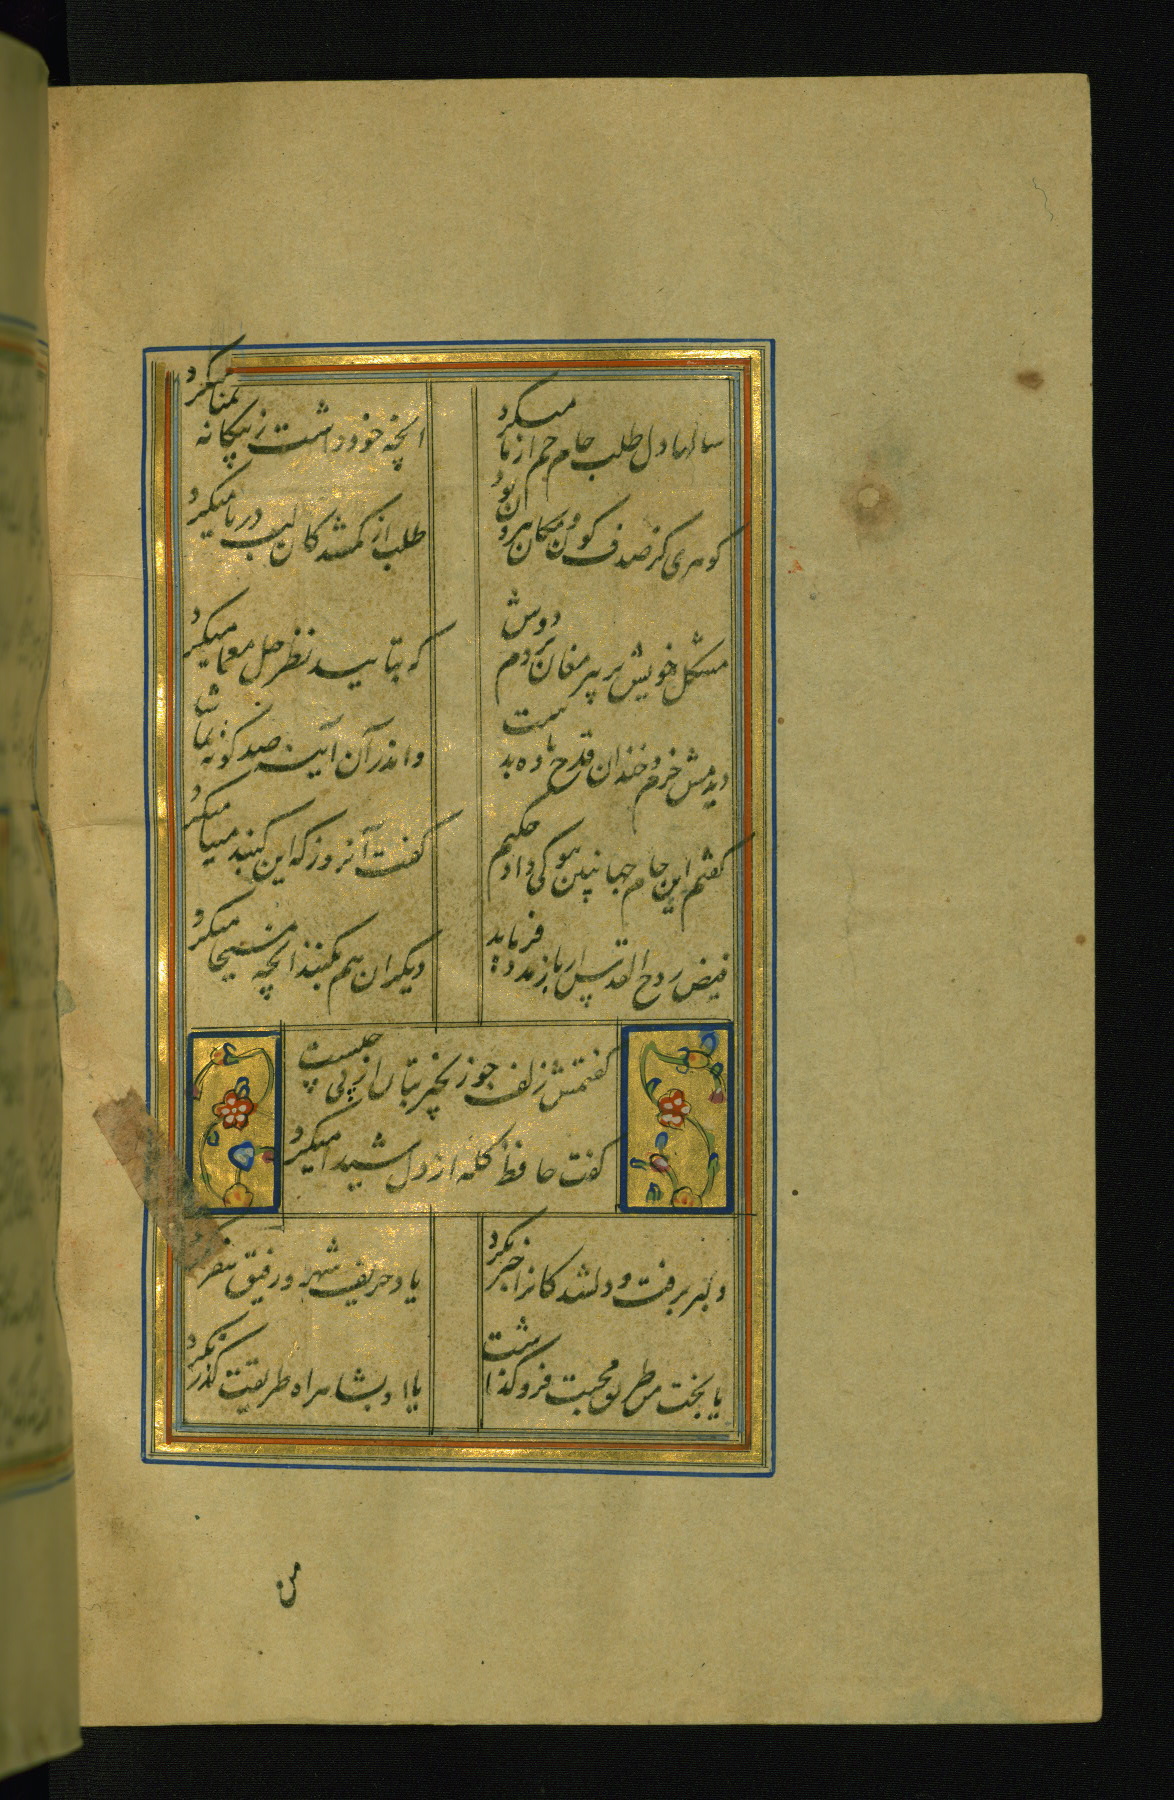 سالها دل طلب جام جم از ما میکرد
انچه خود داشت ز بیکانه تمنا میکرد
کوهری کز صدف کون و مکان بیرون بود
طلب از کمشدکان لب دریا میکرد
مشکل خویش بر پیر مغان بردم دوش
که بتایید نظر حل معما میکرد
دیدمش خرم و خندان قدح باده بدست
و اندر آن آینه صد کونه تماشا میکرد
کفتم این جام جهانبین بتو کی داد حکیم
کفت آنروز که این کنبد مینا میکرد
فیض روح القدس ار باز مدد فرماید
دیکران هم بکنند انچه مسیحا میکرد
کفتمش زلف چو زنجیر بتان از پی چیست
کفت حافظ کله از دل شیدا میکرد
دلبر برفت و دلشدکانرا خبر نکرد
یاد حریف شهر و رفیق سفر نکرد
یا بخت من طریق محبت فرو کذاشت
یا او بشاهراه طریقت کذر نکرد
من